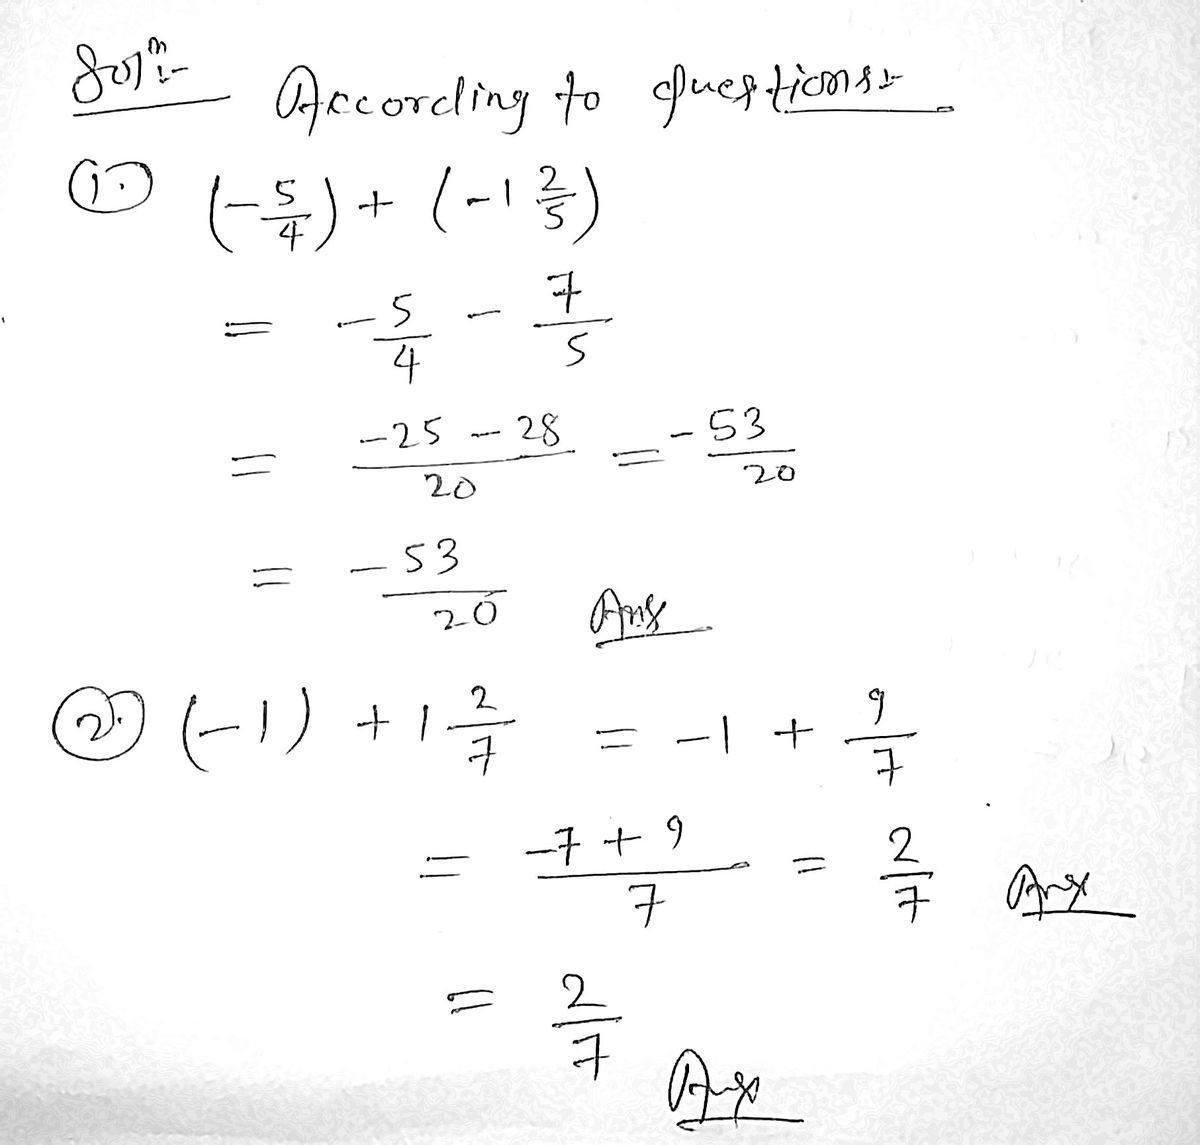 Solⁿ:-
According to questions:-
①. (-5/4) + (-1 2/5)
= -5/4 - 7/5
= (-25 - 28)/20 = -53/20
= -53/20 Ans
②. (-1) + 1 2/7 = -1 + 9/7
= (-7 + 9)/7 = 2/7 Ans
= 2/7 Ans